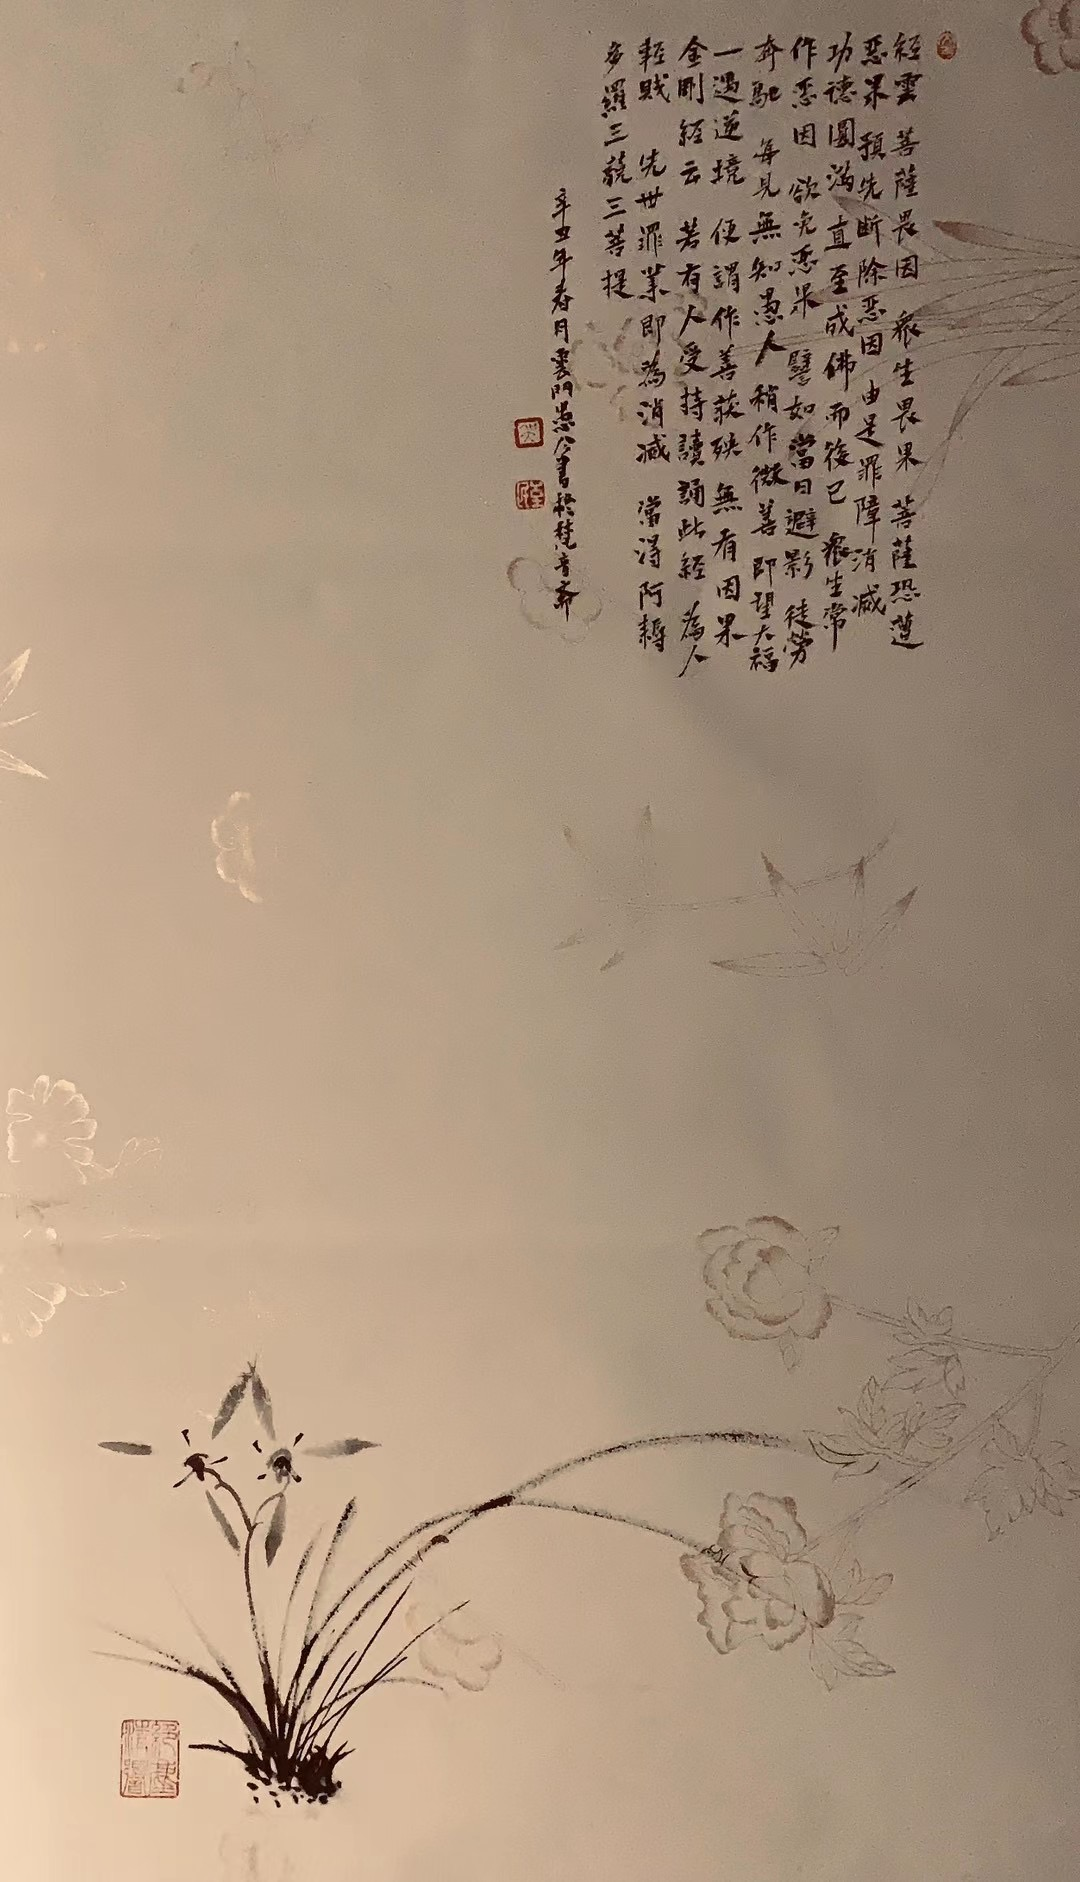 經雲 菩薩畏因 眾生畏果 菩薩恐遭
惡果 預先斷除惡因 由是罪障消滅
功德圓滿 直至成佛而後已 眾生常
作惡因 欲免惡果 譬如當日避影 徒勞
奔馳 每見無知愚人 稍作微善 即望大福
一遇逆境 便謂作善获殃 無有因果
金剛經云 若有人受持讀誦此經 為人
輕賤 先世罪業即為消滅 當得阿耨
多羅三藐三菩提
辛丑年春月雲門愚公書於梵音齋